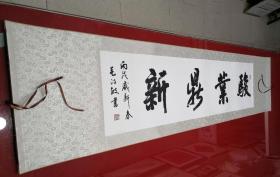 駿業鼎新
丙戌歲新春
毛 書